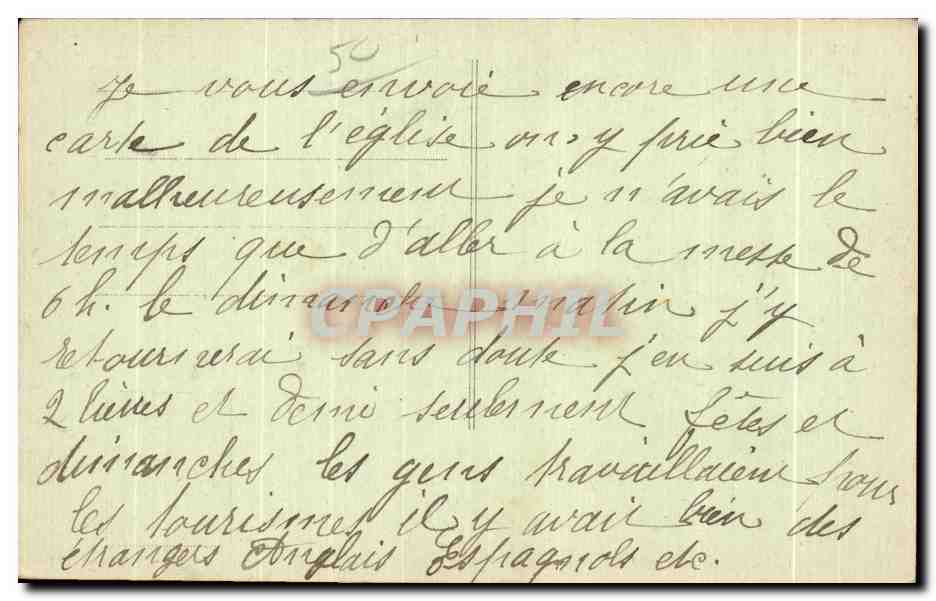 50
Je vous envoie encore une
carte de l'église on y prie bien
malheureusement je n'avais le
temps que d'aller à la messe de
6 h. le dimanche matin j'y
retournerai sans doute j'en suis à
2 lieues et demi seulement fêtes et
dimanches les gens travaillaient pour
les tourismes il y avait bien des
étrangers Anglais Espagnols etc.
CPAPHIL